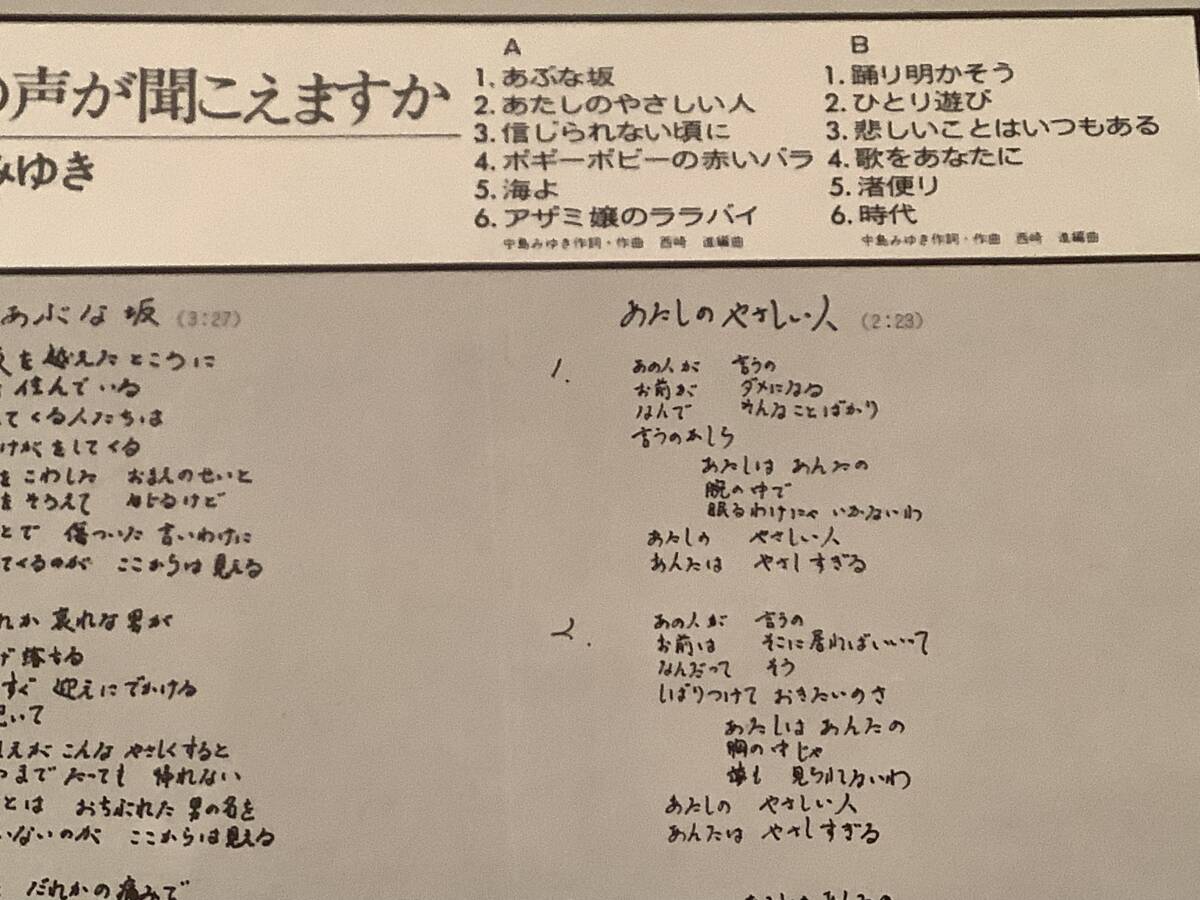 の声が聞こえますか
みゆき
A
1. あぶな坂
2. あたしのやさしい人
3. 信じられない頃に
4. ボギーボビーの赤いバラ
5. 海よ
6. アザミ嬢のララバイ
中島みゆき作詞・作曲 西崎 進編曲
B
1. 踊り明かそう
2. ひとり遊び
3. 悲しいことはいつもある
4. 歌をあなたに
5. 渚便り
6. 時代
中島みゆき作詞・作曲 西崎 進編曲
あぶな坂 (3:27)
を越えたところに
住んでいる
てくる人たちは
けがをしてくる
をこわした おまえのせいと
をそろえて なじるけど
とで 傷ついた 言いわけに
てくるのが ここからは見える
れか 哀れな男が
落ちる
すぐ 迎えにでかける
いて
えが こんな やさしくすると
つまで たっても 帰れない
とは おちぶれた 男の名を
いないのが ここからは見える
だれかの痛みで
あたしの やさしい人 (2:23)
1.
あの人が 言うの
お前が ダメになる
なんで そんなことばかり
言うのかしら
あたしは あんたの
腕の中で
眠るわけにゃ いかないわ
あたしの やさしい人
あんたは やさしすぎる
2.
あの人が 言うの
お前は そこに居ればいいって
なんだって そう
しばりつけて おきたいのさ
あたしは あんたの
胸の中じゃ
夢も 見られてないわ
あたしの やさしい人
あんたは やさしすぎる